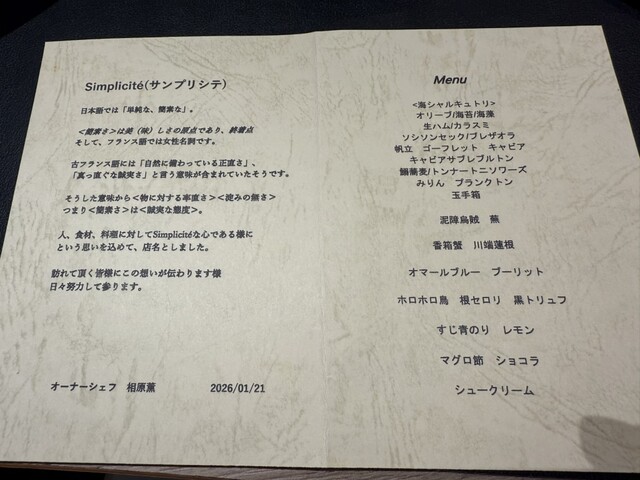 Simplicité(サンプリシテ)
日本語では「単純な、簡素な」。
＜簡素さ＞は美（味）しさの原点であり、終着点
そして、フランス語では女性名詞です。
古フランス語には「自然に備わっている正直さ」、
「真っ直ぐな誠実さ」と言う意味が含まれていたそうです。
そうした意味から＜物に対する率直さ＞＜淀みの無さ＞
つまり＜簡素さ＞は＜誠実な態度＞。
人、食材、料理に対してSimplicitéな心である様に
という思いを込めて、店名としました。
訪れて頂く皆様にこの想いが伝わります様
日々努力して参ります。
オーナーシェフ　相原薫　2026/01/21
Menu
<海シャルキュトリ>
オリーブ/海苔/海藻
生ハム/カラスミ
ソシソンセック/ブレザオラ
帆立　ゴーフレット　キャビア
キャビアサブレブルトン
鰯蕎麦/トンナートニソワーズ
みりん　プランクトン
玉手箱
泥障烏賊　蕪
香箱蟹　川端蓮根
オマールブルー　ブーリット
ホロホロ鳥　根セロリ　黒トリュフ
すじ青のり　レモン
マグロ節　ショコラ
シュークリーム